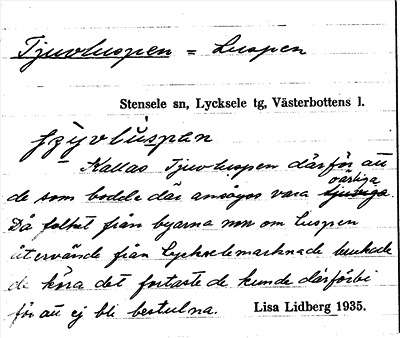 Tjuvluspen = Luspen
Stensele sn, Lycksele tg, Västerbottens l.
Kallas Tjuvluspen därför att
oärliga
de som bodde där ansågos vara tjuviga
Då folket från byarna nv om Luspen
återvände från Lyckselemarknade brukade
de köra det fortaste de kunde därförbi
för att ej bli bestulna.
Lisa Lidberg 1935.